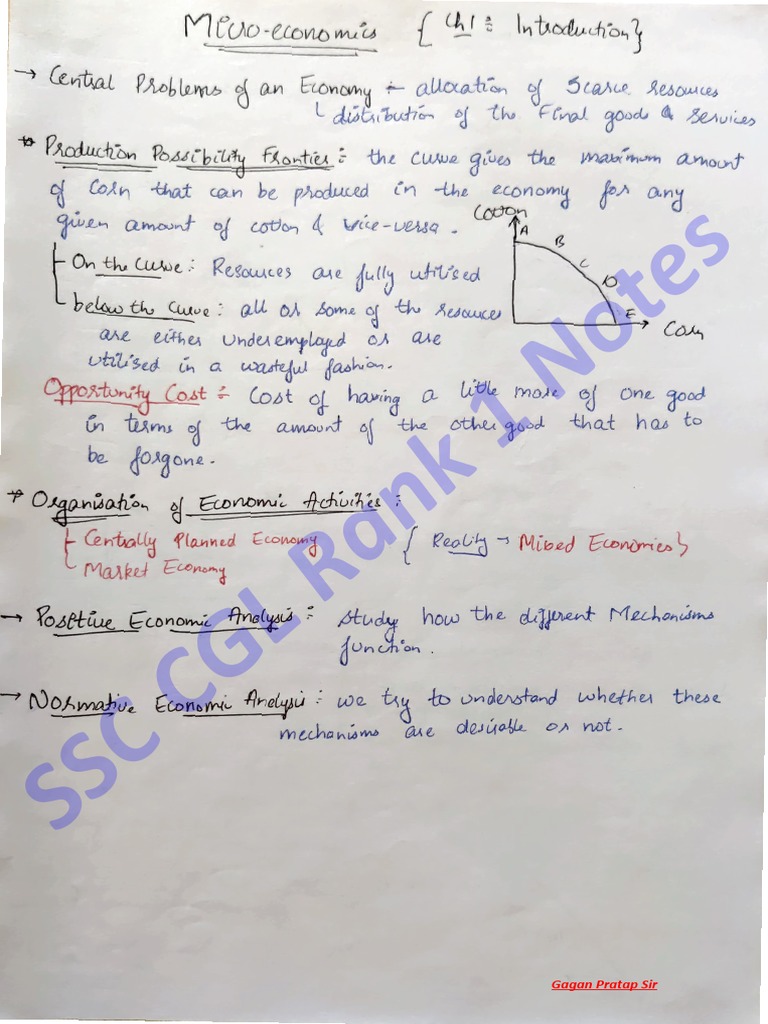 Micro-economics { Ch1 : Introduction}
→ Central Problems of an Economy :- allocation of Scarce resources
distribution of the Final goods & services
Production Possibility Frontier :- the curve gives the maximum amount
of Corn that can be produced in the economy for any
given amount of cotton & vice-versa.
Cotton
A
B
C
D
E
Corn
On the Curve : Resources are fully utilised
below the curve : all or some of the resources
are either underemployed or are
utilised in a wasteful fashion.
Opportunity Cost :- Cost of having a little more of one good
in terms of the amount of the other good that has to
be forgone.
Organisation of Economic Activities :
Centrally Planned Economy { Reality → Mixed Economies}
Market Economy
→ Positive Economic Analysis :- study how the different Mechanisms
function.
→ Normative Economic Analysis :- we try to understand whether these
mechanisms are desirable or not.
SSC CGL Rank 1 Notes
Gagan Pratap Sir